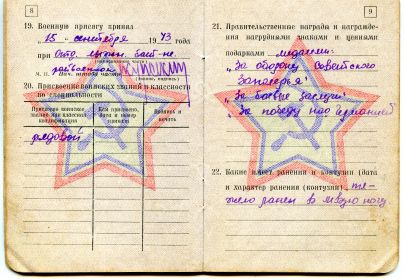 8
19. Военную присягу принял
15 сентября 1943 года
при Отд. лыжн. бат-не
(наименование части)
М. П. Нач. штаба части
(звание, подпись)
20. Присвоение воинских званий и классности
по специальности
Присвоено воинское
звание или классная
квалификация
Кем присвоено,
дата и номер
приказа
Подпись и
печать
рядовой
9
21. Правительственные награды и награжде-
ния нагрудными знаками и ценными
подарками медали:
„За оборону Советского
Заполярья"
„За боевые заслуги"
„За победу над Германией
22. Какие имеет ранения и контузии (дата
и характер ранения (контузии) тя-
жело ранен в левую ногу